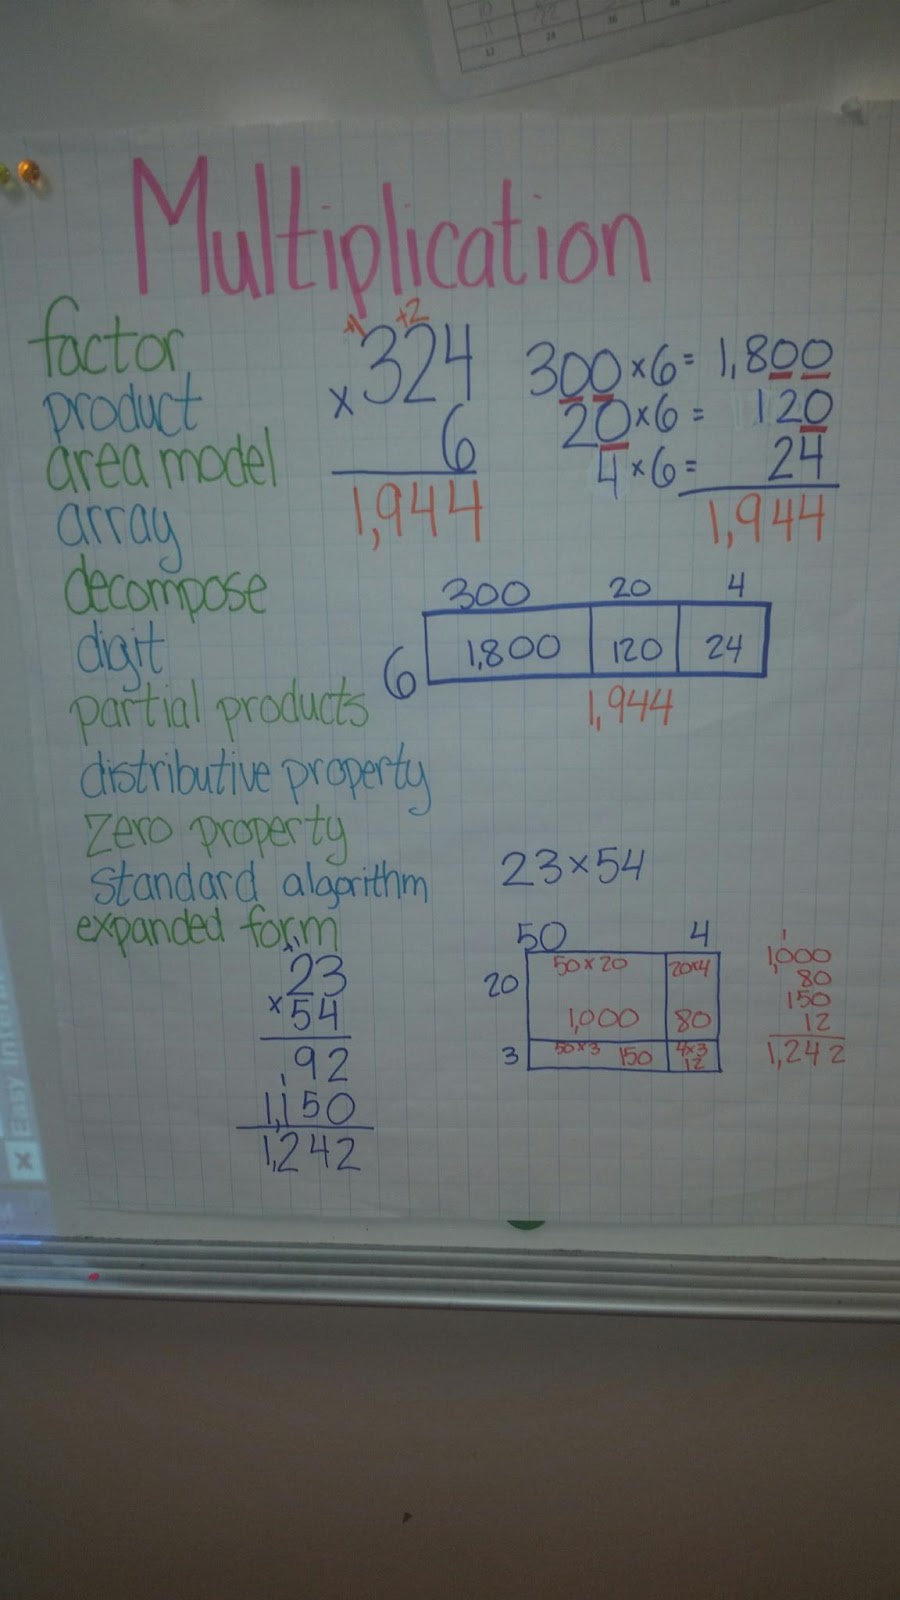 Multiplication
factor
product
area model
array
decompose
digit
partial products
distributive property
zero property
standard algorithm
expanded form
+1 +2
324
×
6
1,944
300×6= 1,800
20×6= 120
4×6= 24
1,944
300 20 4
6 1,800 120 24
1,944
23
×54
92
1,150
1,242
23×54
50 4
20 50×20 20×4
1,000 80
3 50×3 150 4×3
12
1
1,000
80
150
12
1,242
X Easy Inter